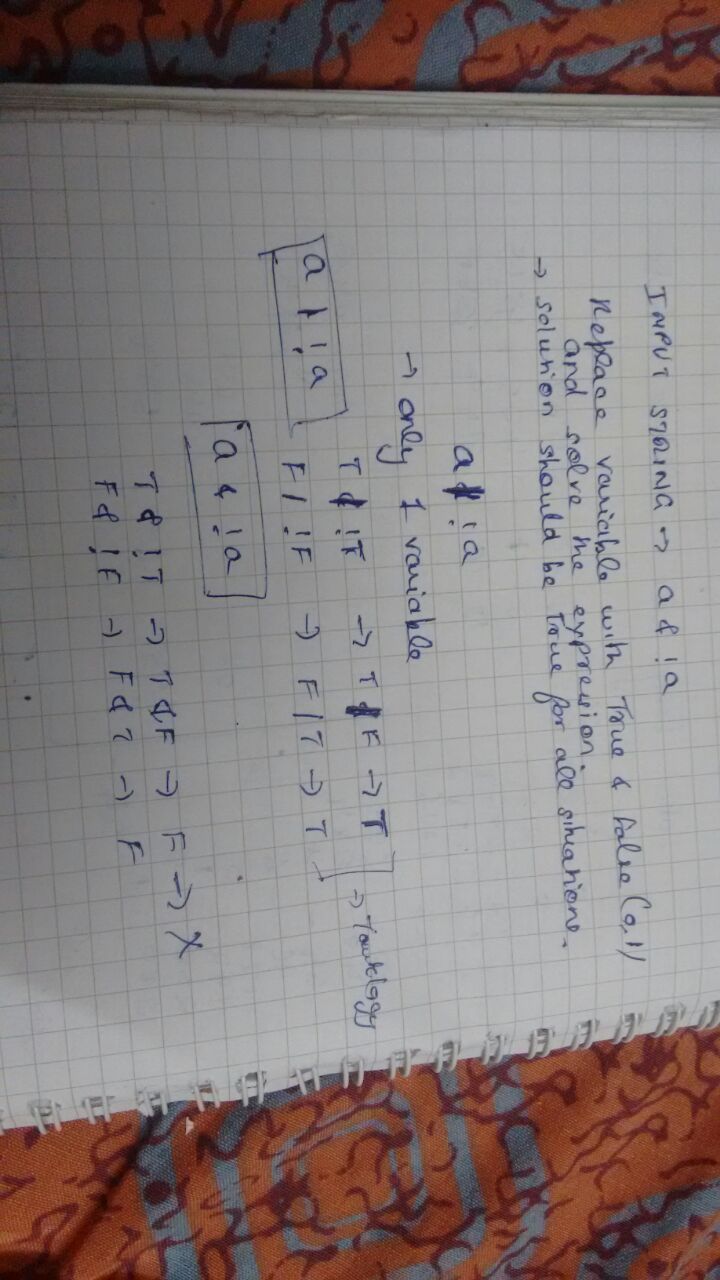 INPUT STRING → a & !a
Replace variable with True & False (0,1)
and solve the expression.
→ solution should be true for all situations.
a | !a
→ only 1 variable
T | !T → T | F → T
a | !a
F | !F → F | T → T
→ Tautology
a & !a
T & !T → T & F → F → X
F & !F → F & T → F